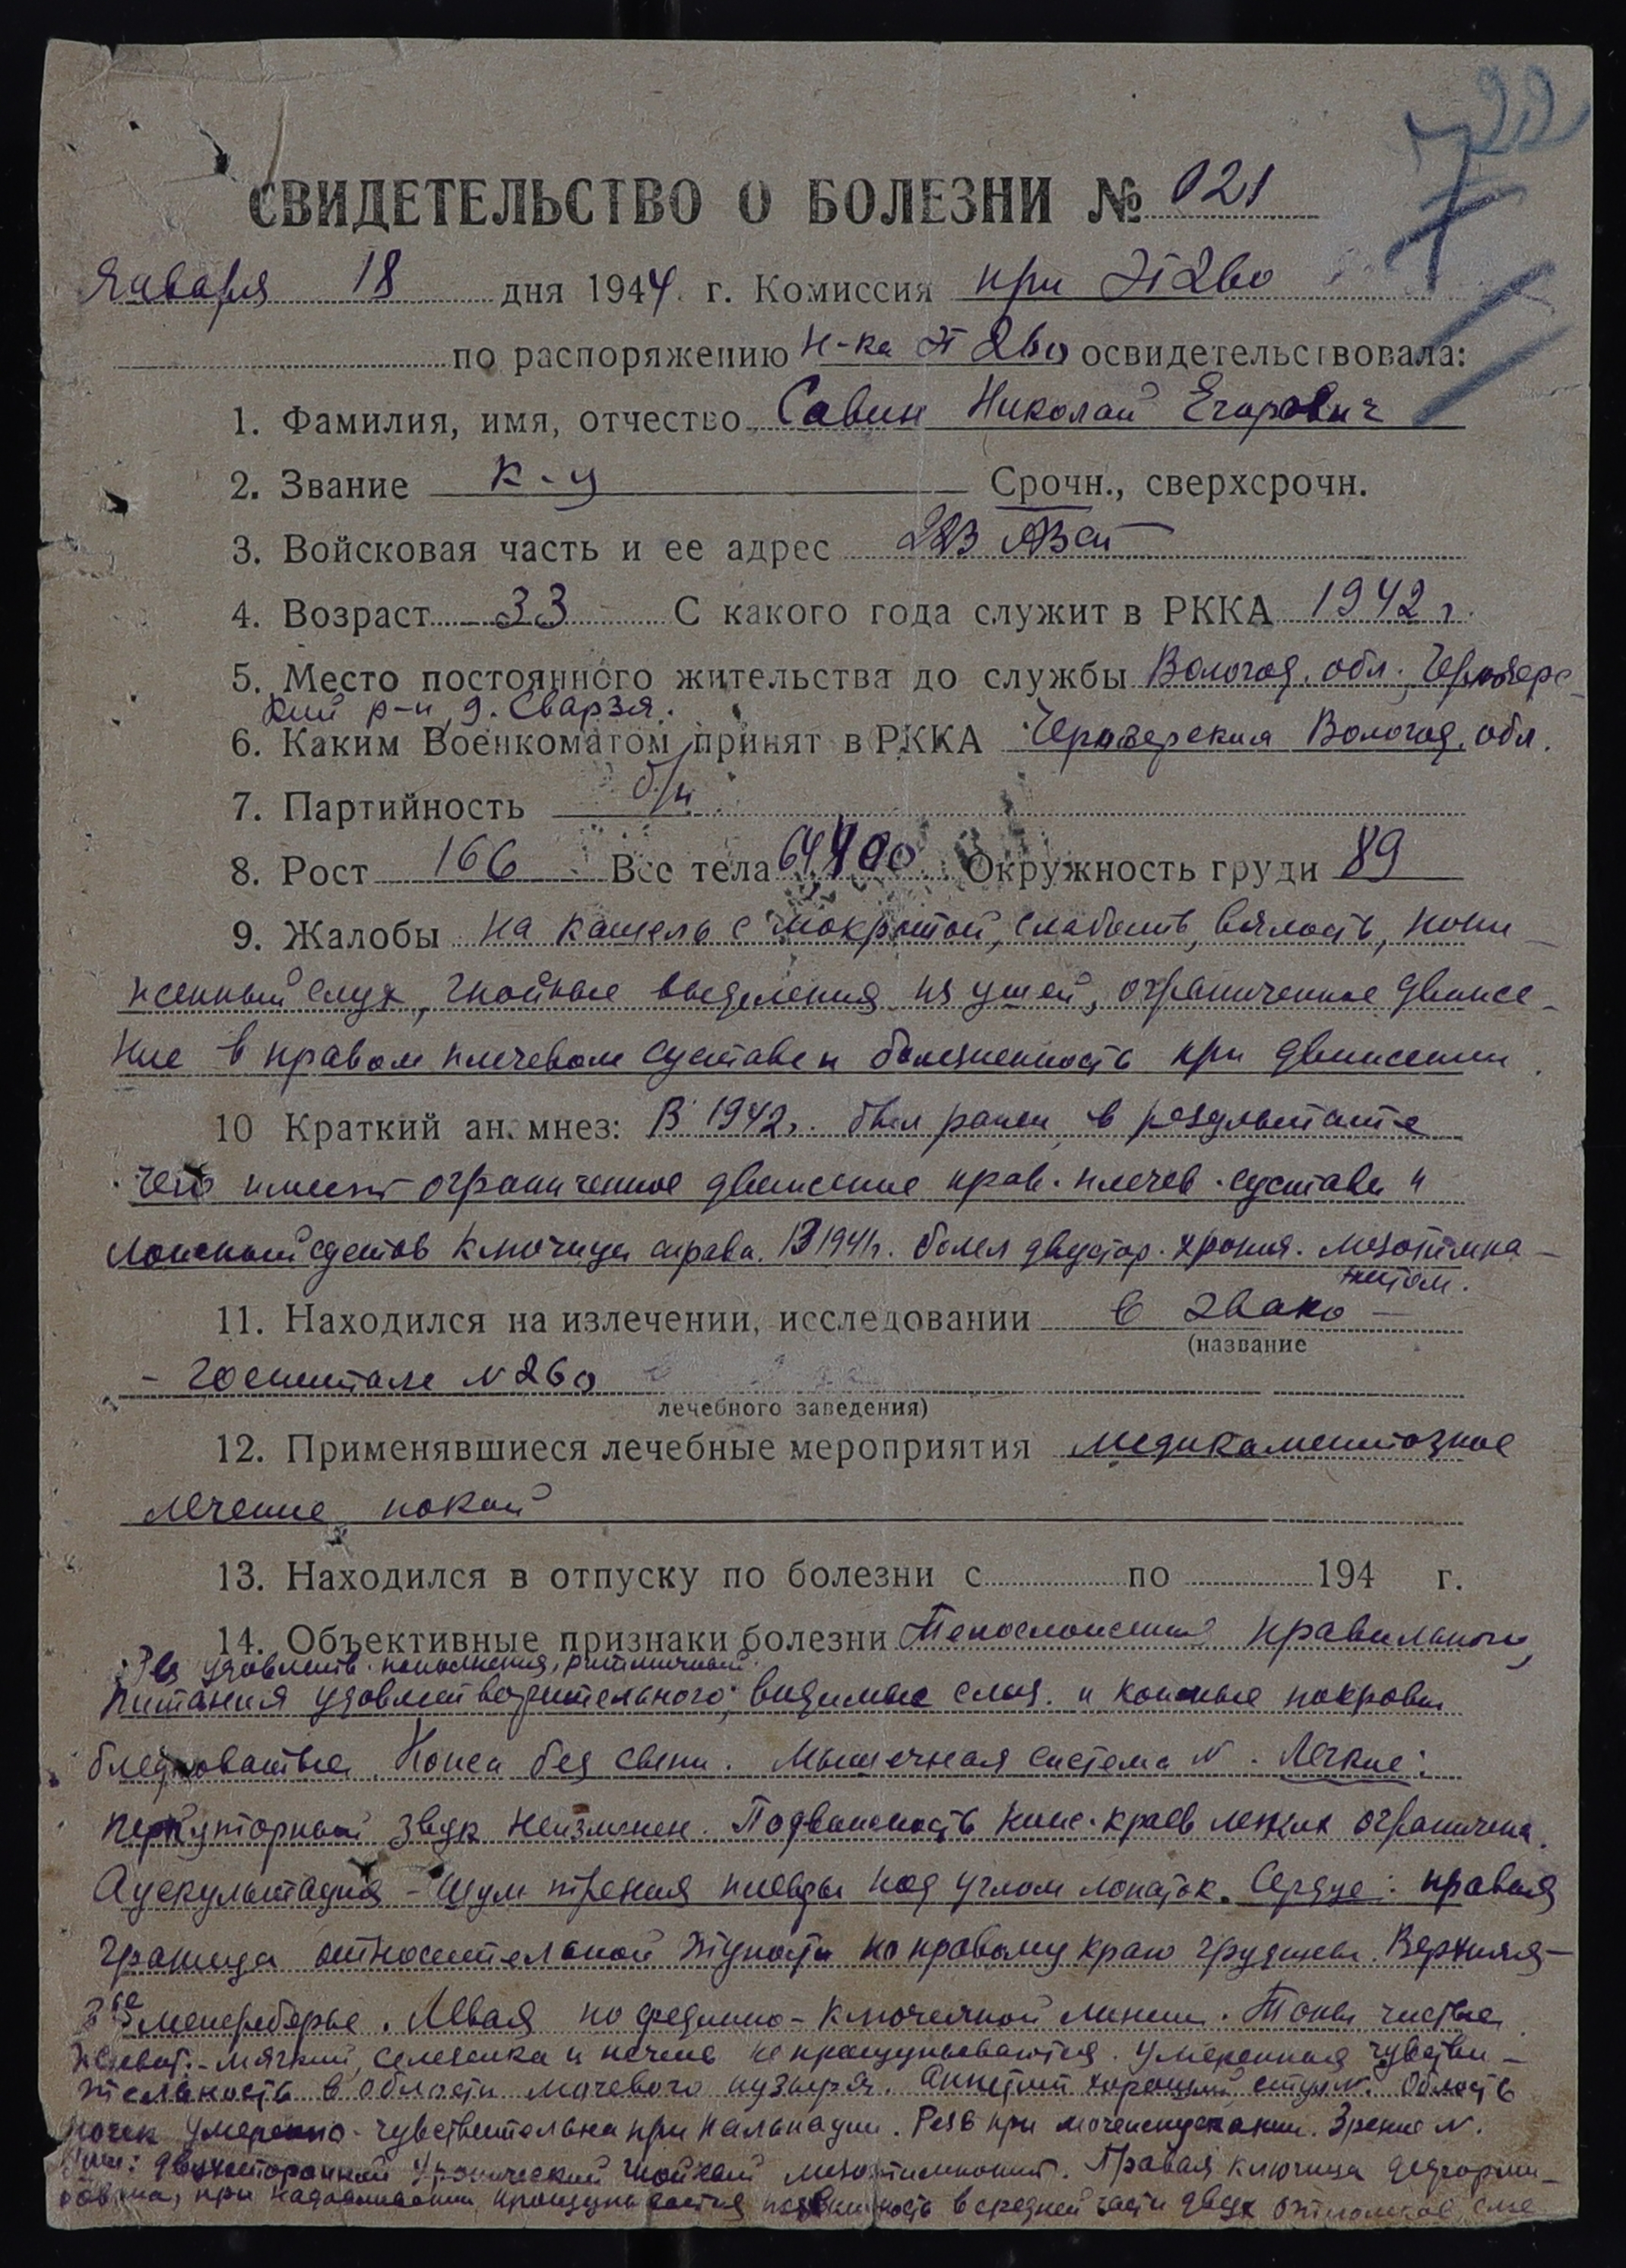 22
7
СВИДЕТЕЛЬСТВО О БОЛЕЗНИ № 021
Января 18 дня 1944 г. Комиссия при ЭГ 260
по распоряжению н-ка ЭГ 260 освидетельствовала:
1. Фамилия, имя, отчество Савин Николай Егорович
2. Звание к-ц Срочн., сверхсрочн.
3. Войсковая часть и ее адрес 223 АЗСП
4. Возраст 33 С какого года служит в РККА 1942 г.
5. Место постоянного жительства до службы Вологод. обл.
кий р-н, д. Сварзя.
6. Каким Военкоматом принят в РККА Вологод. обл.
7. Партийность б/п
8. Рост 166 Вес тела 64400 Окружность груди 89
9. Жалобы на кашель с мокротой, слабость, вялость, пони-
женный слух, гнойные выделения из ушей, ограниченное движе-
ние в правом плечевом суставе и болезненность при движении.
10 Краткий анамнез: В 1942г. был ранен, в результате
чего имеет ограниченное движение прав. плечев. сустава и
ложный сустав ключицы справа. В 1941г. болел двустор. хронич. мезотимпа-
нитом.
11. Находился на излечении, исследовании в эвако-
(название
- госпитале N 260
лечебного заведения)
12. Применявшиеся лечебные мероприятия медикаментозное
лечение, покой
13. Находился в отпуску по болезни с по 194 г.
14. Объективные признаки болезни Телосложения правильного,
удовлетв. наполнения, ритмичный.
питания удовлетворительного; видимые слиз. и кожные покровы
бледноватые. Кожа без сыпи. Мышечная система N. Легкие:
перкуторный звук неизменен. Подвижность ниж. краев легких ограничена.
Аускультация - шум трения плевры под углом лопаток. Сердце: правая
граница относительной тупости по правому краю грудины. Верхняя -
3ье межреберье. Левая по средино-ключичной линии. Тоны чистые
Живот: - мягкий, селезенка и печень не прощупываются. Умеренная чувстви-
тельность в области мочевого пузыря. Аппетит хороший, стул N. Область
почек умеренно-чувствительна при пальпации. Резь при мочеиспускании. Зрение N.
Уши: двухсторонний хронический гнойный мезотимпанит. Правая ключица деформи-
рована, при надавливании прощупывается подвижность в средней части двух отломков